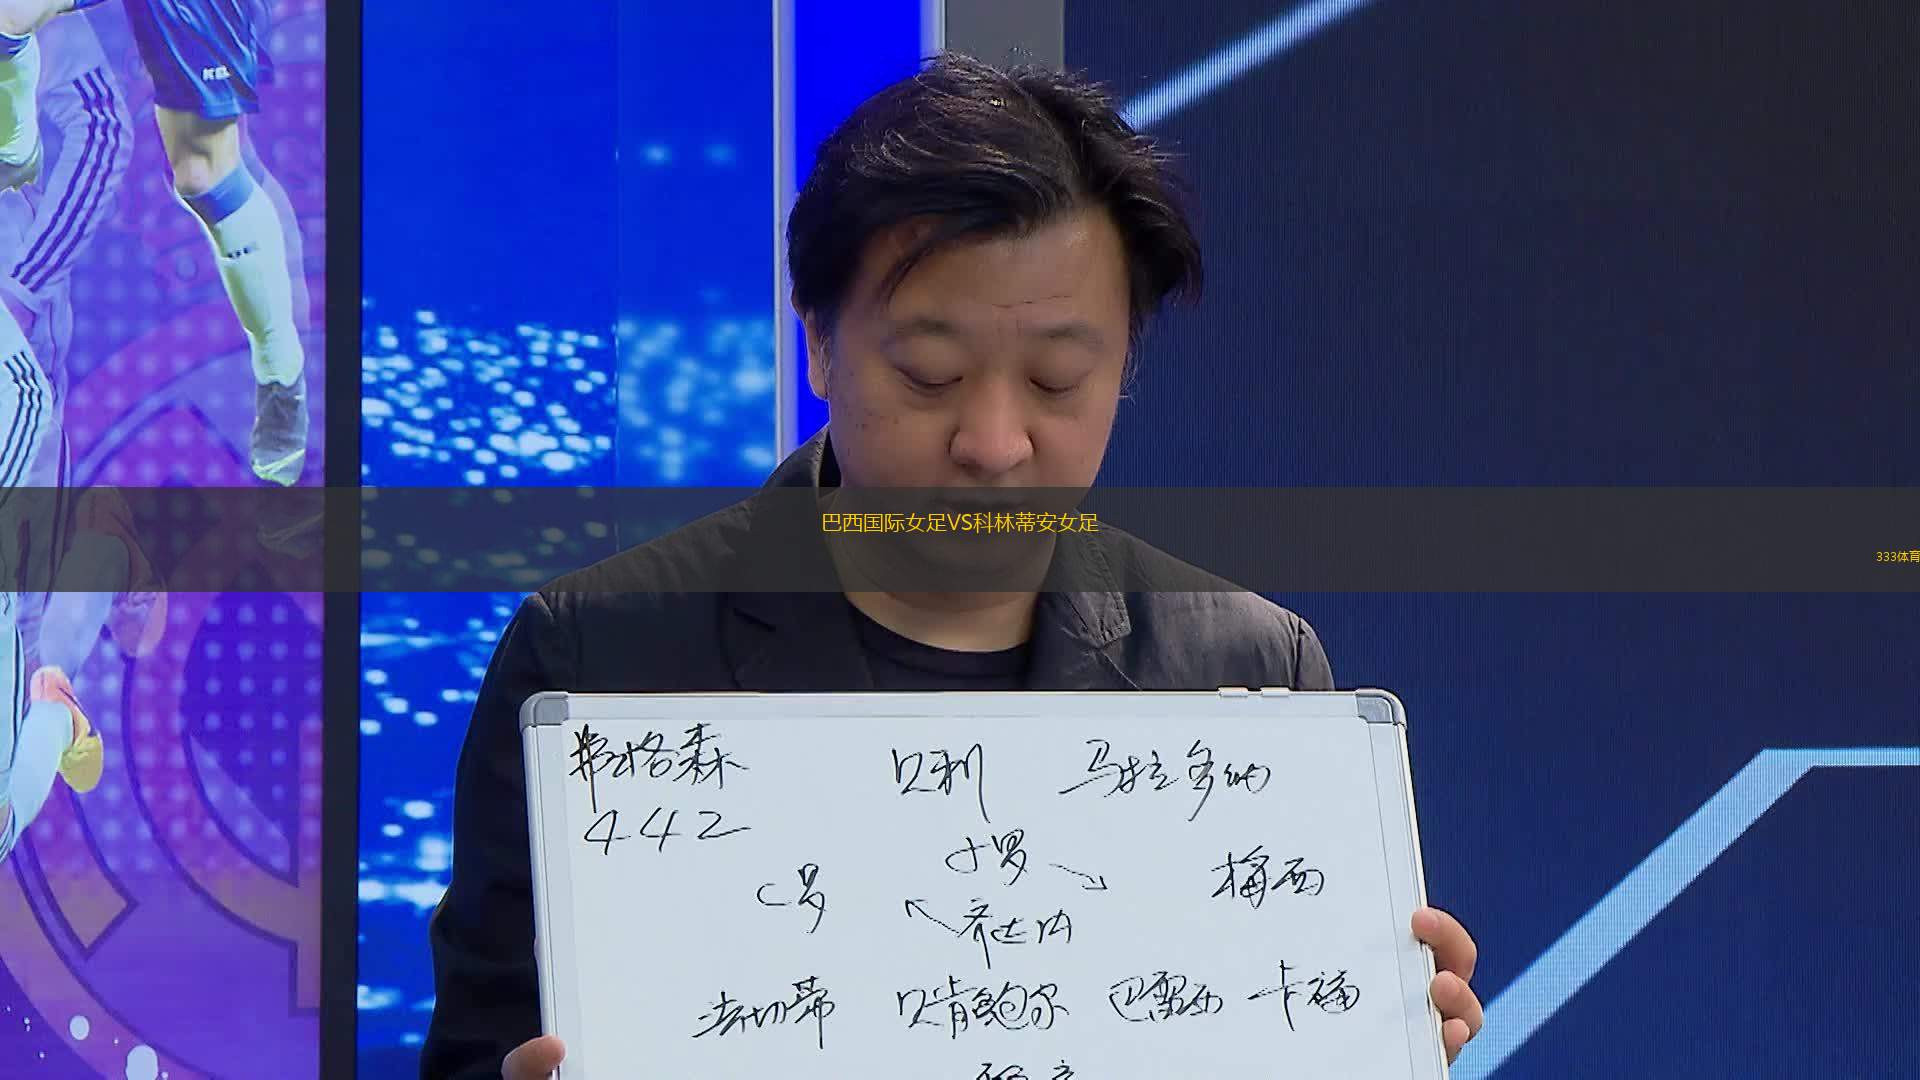 巴西国际女足VS科林蒂安女足
333体育
弗格森 贝利 马拉多纳
442
小罗
C罗 梅西
齐达内
法切蒂 贝肯鲍尔 巴雷西 卡福